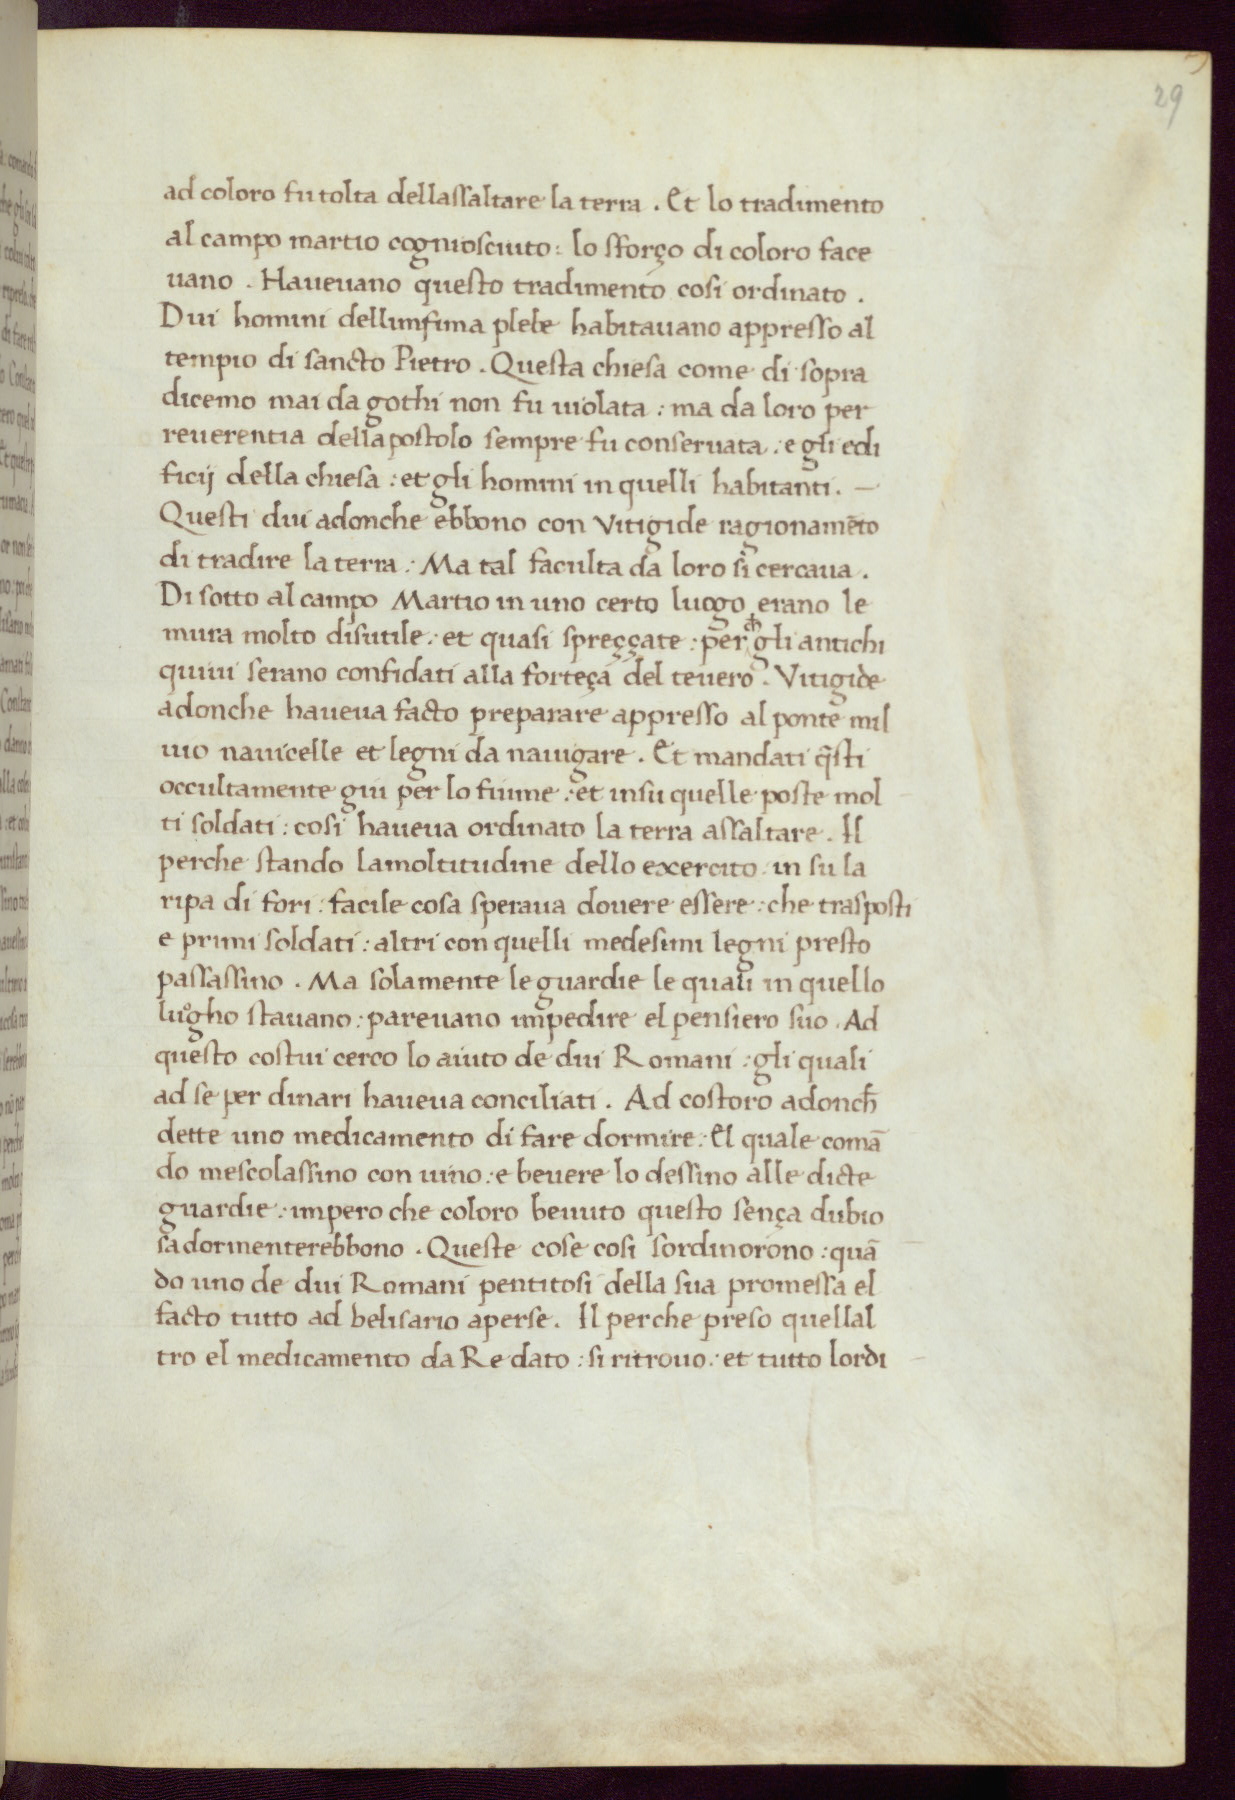 29
ad coloro fu tolta dellassaltare la terra . Et lo tradimento
al campo martio cogniosciuto : lo sforço di coloro face
uano . Haueuano questo tradimento cosi ordinato .
Dui homini dellinfima plebe habitauano appresso al
tempio di sancto Pietro . Questa chiesa come di sopra
dicemo mai da gothi non fu uiolata : ma da loro per
reuerentia dellapostolo sempre fu conseruata : e gli edi
ficij della chiesa : et gli homini in quelli habitanti . —
Questi dui adonche ebbono con Vitigide ragionamẽto
di tradire la terra : Ma tal faculta da loro si cercaua .
Di sotto al campo Martio in uno certo luogo erano le
mura molto disutile : et quasi spreççate : per ch̅ gli antichi
quiui serano confidati alla forteça del teuero . Vitigide
adonche haueua facto preparare appresso al ponte mil
uio nauicelle et legni da nauigare . Et mandati q̃sti
occultamente giu per lo fiume : et insu quelle poste mol
ti soldati : cosi haueua ordinato la terra assaltare . Il
perche stando lamoltitudine dello exercito in su la
ripa di fori : facile cosa speraua douere essere : che trasposti
e primi soldati : altri con quelli medesimi legni presto
passassino . Ma solamente le guardie le quali in quello
luogho stauano : pareuano impedire el pensiero suo . Ad
questo costui cerco lo aiuto de dui Romani : gli quali
ad se per dinari haueua conciliati . Ad costoro adonch̅
dette uno medicamento di fare dormire : El quale comã
do mescolassino con uino : e beuere lo dessino alle dicte
guardie : impero che coloro beuuto questo sença dubio
sadormenterebbono . Queste cose cosi sordinorono : quã
do uno de dui Romani pentitosi della sua promessa el
facto tutto ad belisario aperse . Il perche preso quellal
tro el medicamento da Re dato : si ritrouo : et tutto lordi